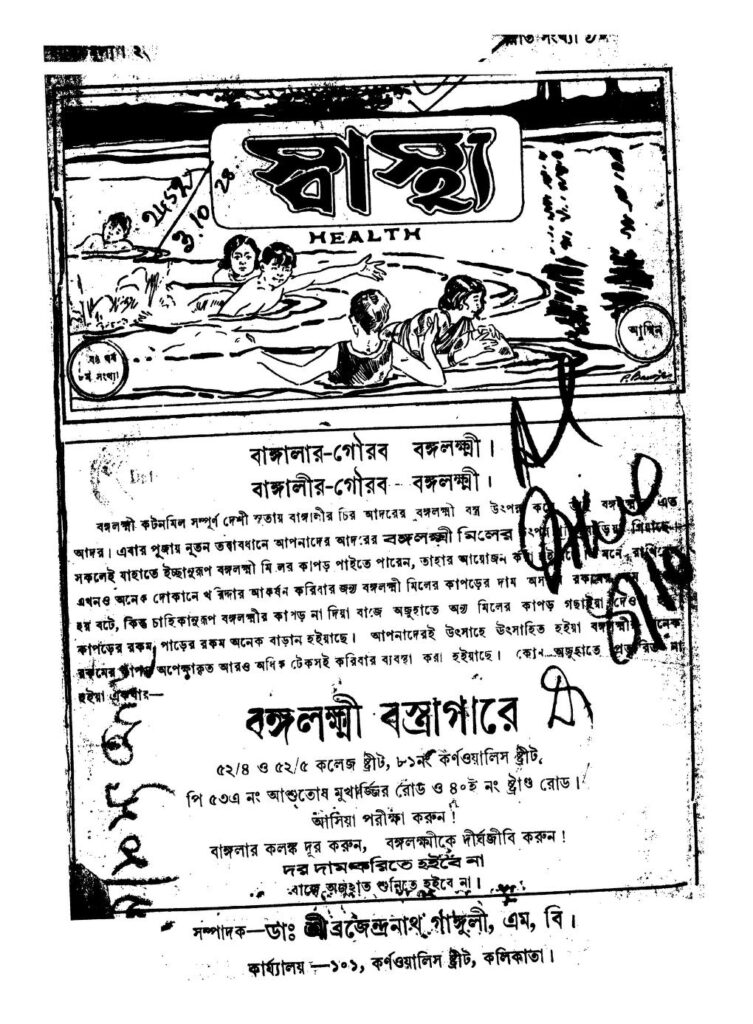 প্রতি সংখ্যা
স্বাস্থ্য
HEALTH
24591
3.10.28
আশ্বিন
৬ষ্ঠ বর্ষ
৮ম সংখ্যা
বাঙ্গালার-গৌরব বঙ্গলক্ষ্মী।
বাঙ্গালীর-গৌরব বঙ্গলক্ষ্মী।
বঙ্গলক্ষ্মী কটনমিল সম্পূর্ণ দেশী সূতায় বাঙ্গালীর চির আদরের বঙ্গলক্ষ্মী বস্ত্র উৎপন্ন এত
আদর। এবার পূজায় নূতন তত্বাবধানে আপনাদের আদরের বঙ্গলক্ষ্মী মিলের
সকলেই যাহাতে ইচ্ছানুরূপ বঙ্গলক্ষ্মী মিলের কাপড় পাইতে পারেন, তাহার আয়োজন
এখনও অনেক দোকানে খরিদ্দার আকর্ষন করিবার জন্য বঙ্গলক্ষ্মী মিলের কাপড়ের দাম
হয় বটে, কিন্তু চাহিকানুরূপ বঙ্গলক্ষ্মীর কাপড় না দিয়া বাজে অজুহাতে অন্য মিলের কাপড় গছাইয়া
কাপড়ের রকম, পাড়ের রকম অনেক বাড়ান হইয়াছে। আপনাদেরই উৎসাহে উৎসাহিত হইয়া
রকমের কাপড় অপেক্ষাকৃত আরও অধিক টেকসই করিবার ব্যবস্থা করা হইয়াছে। কোন অজুহাতে না
হইয়া একবার—
বঙ্গলক্ষ্মী বস্ত্রাগারে
৫২/৪ ও ৫২/৫ কলেজ ষ্ট্রীট, ৮১নং কর্ণওয়ালিস ষ্ট্রীট,
পি ৫৩এ নং আশুতোষ মুখার্জ্জির রোড ও ৪০ই নং ষ্ট্রাণ্ড রোড।
আসিয়া পরীক্ষা করুন!
বাঙ্গলার কলঙ্ক দূর করুন, বঙ্গলক্ষ্মীকে দীর্ঘজীবি করুন!
দর দাম করিতে হইবে না
বাজে অজুহাত শুনিতে হইবে না।
সম্পাদক—ডাঃ শ্রীব্রজেন্দ্রনাথ গাঙ্গুলী, এম, বি।
কার্য্যালয়—১০১, কর্ণওয়ালিস ষ্ট্রীট, কলিকাতা।